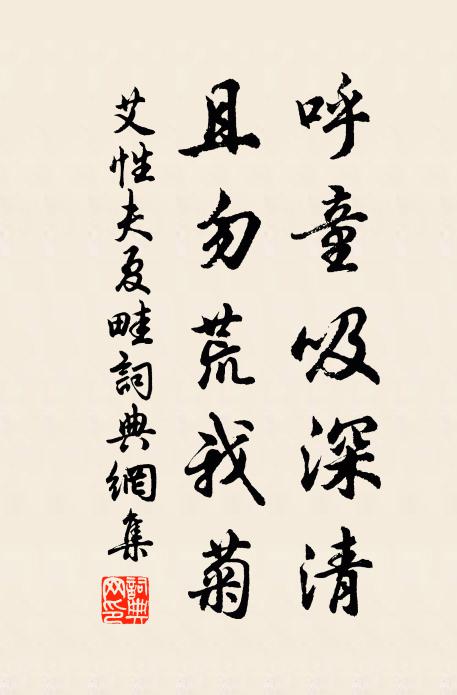 呼童吸深清
且勿荒我菊
艾性夫夏畦詞典網集
詞典网印